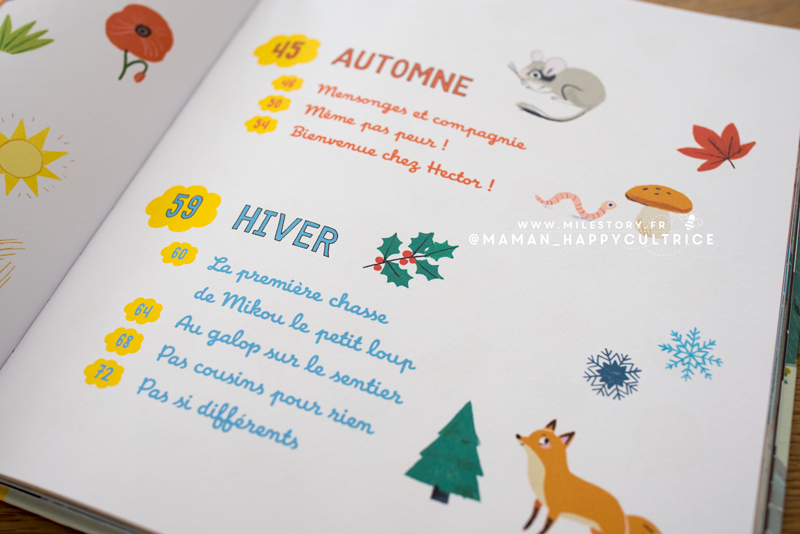 45 AUTOMNE
46 Mensonges et compagnie
50 Même pas peur !
54 Bienvenue chez Hector !
59 HIVER
60 La première chasse
de Mikou le petit loup
64 Au galop sur le sentier
68 Pas cousins pour rien
72 Pas si différents
WWW.MILESTORY.FR
@MAMAN_HAPPYCULTRICE